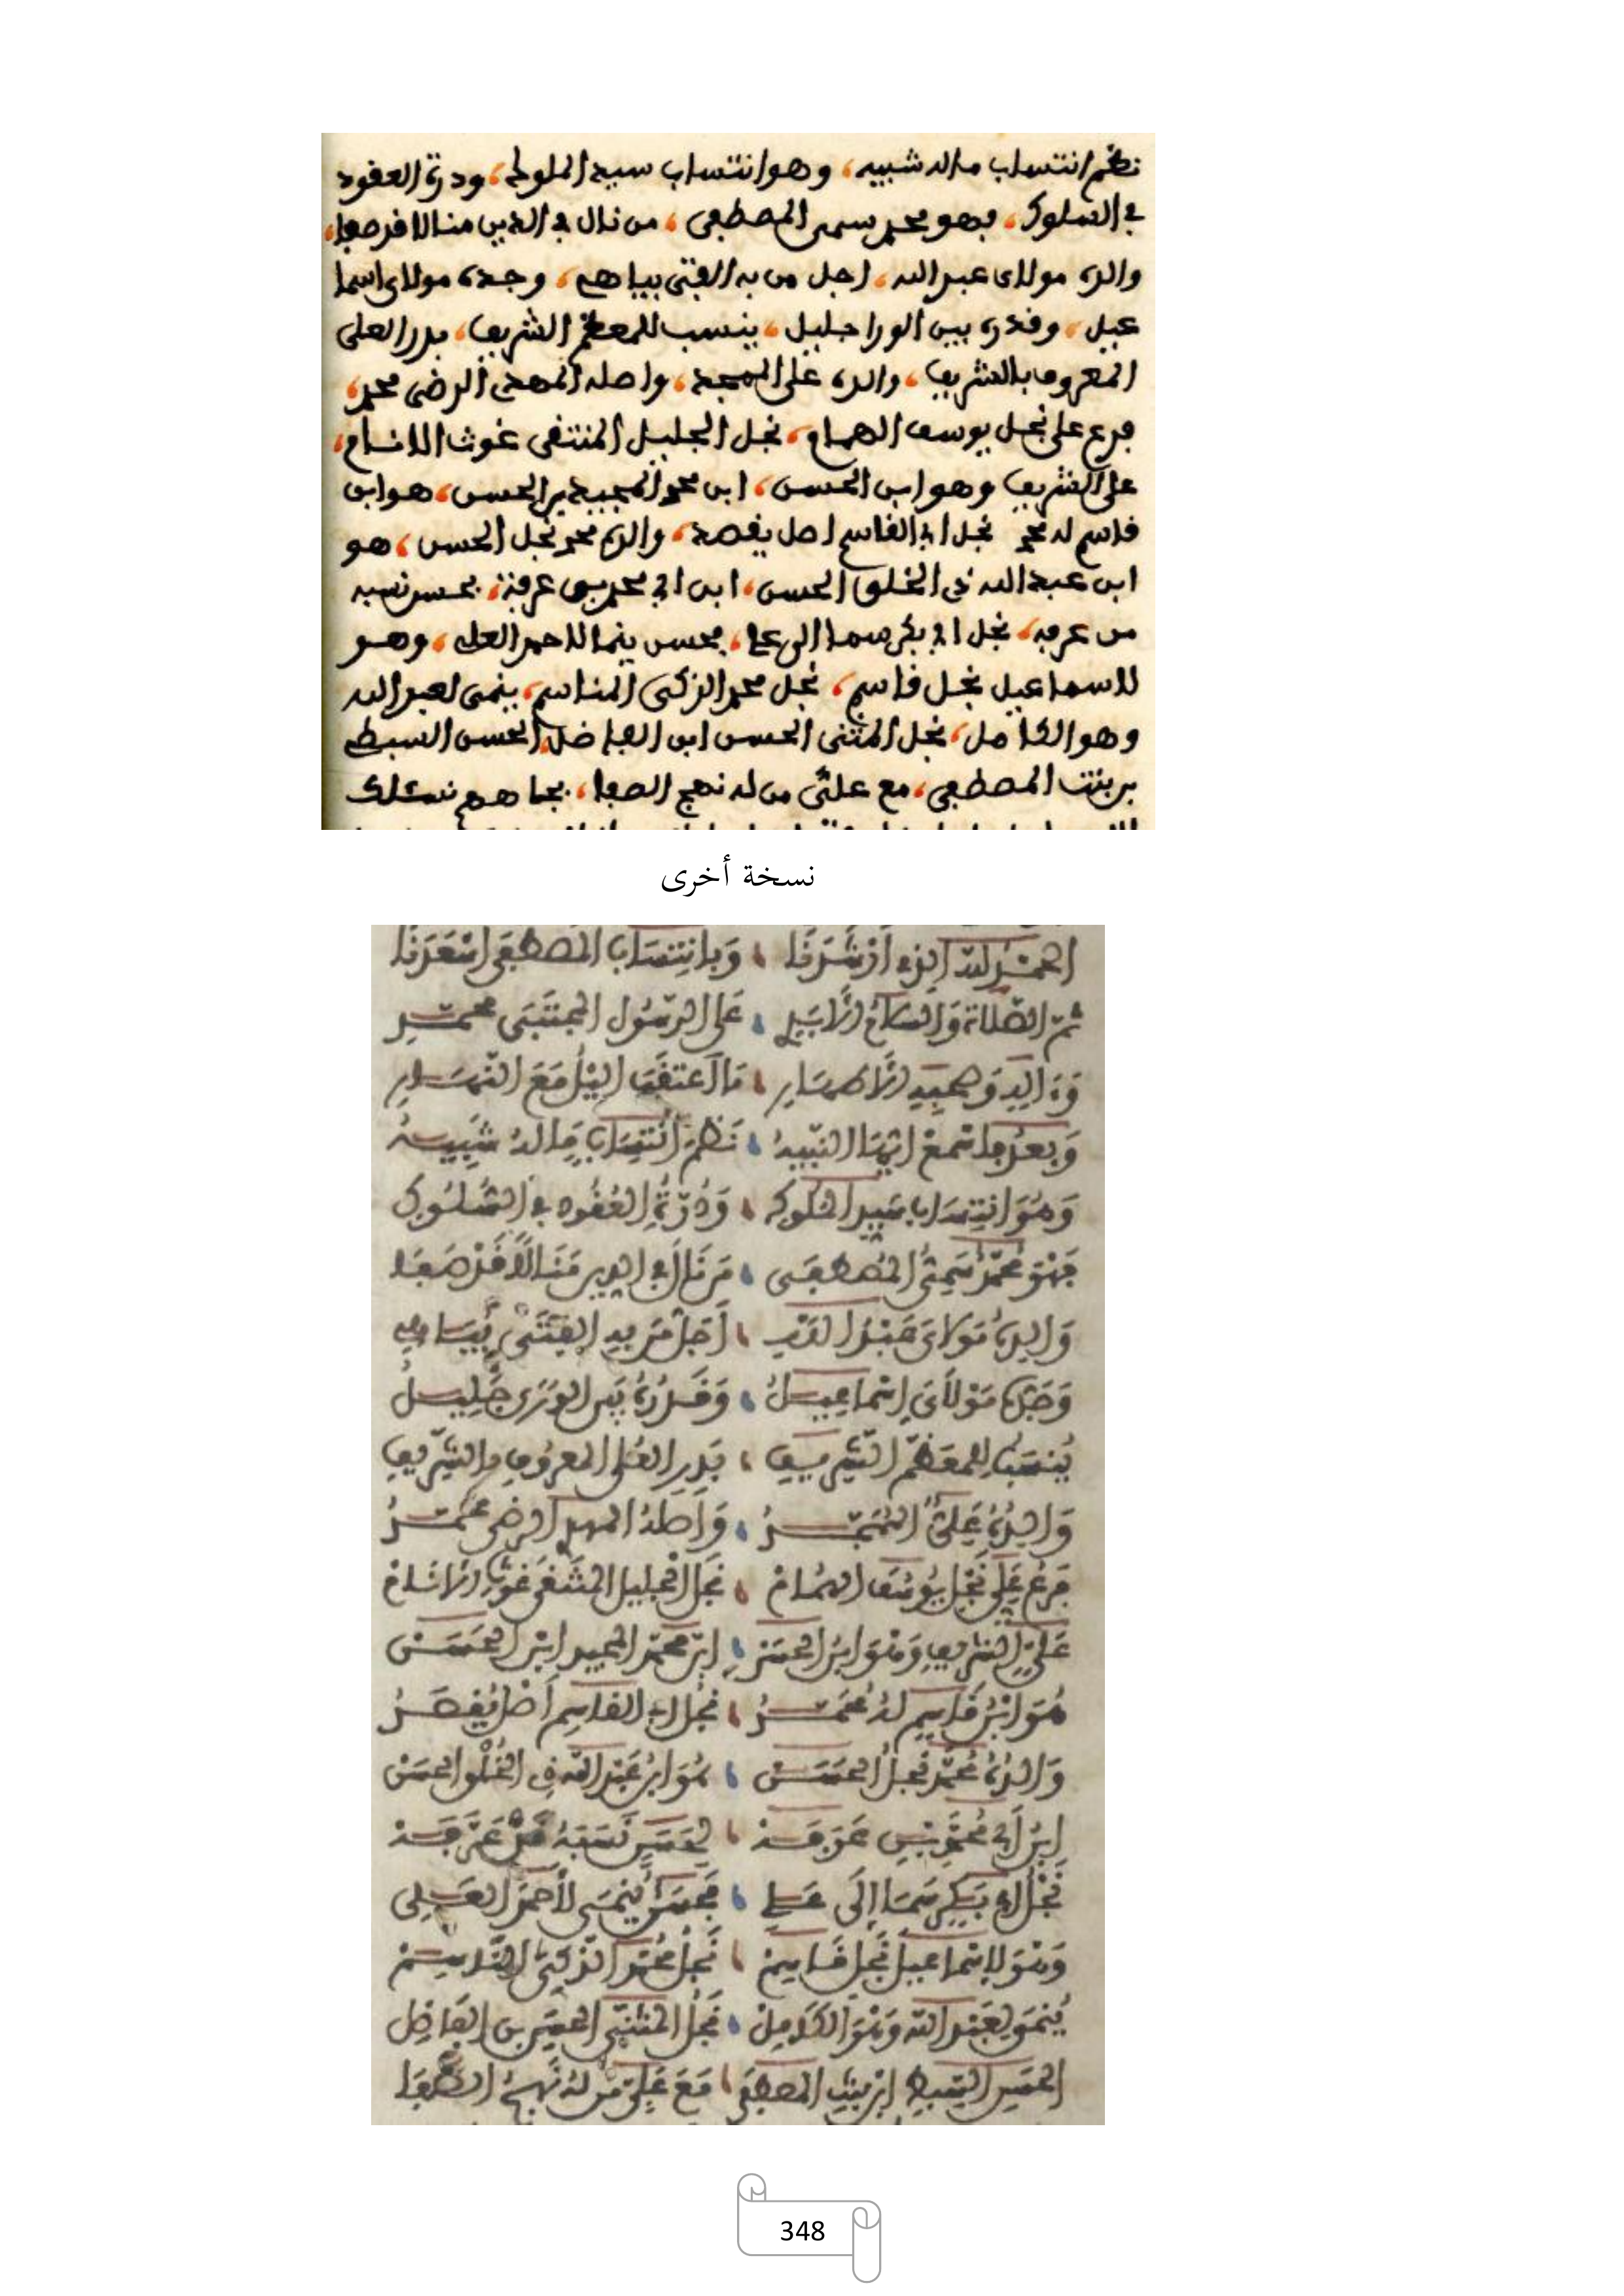 نظم انتساب ماله شبيه، وهو انتساب سيد الملوك، ودرة العقود
في السلوك، فهو محمد سمى المصطفى، من نال في الدين منالا قد صفا،
والده مولاى عبد الله، اجل من به الفتى يباهى، وجده مولاى اسما
عيل، وقدره بين الورا جليل، ينسب للمعظم الشريف، بدر العلى
المعروف بالشريف، والده على الممجد، واصله المهدى الرضى محمد،
فرع على نجل يوسف الهمام، نجل الجليل المنتقى غوث الانام،
على الشريف وهو ابن الحسن، ابن محمد المجيد بن الحسن، هو ابن
قاسم له محمد نجل ابي القاسم اصل يقصد، والدهم محمد نجل الحسن، هو
ابن عبد الله ذي الخلق الحسن، ابن ابي محمد بن عرفة، بحسن نسبه
من عرفه، نجل ابي بكر سما الى على، بحسن ينما لاحمد العلى، وهو
لاسماعيل نجل قاسم، نجل محمد الزكى المناسم، ينمى لعبد الله
وهو الكامل، نجل المثنى الحسن ابن الفاضل، الحسن السبط
بن بنت المصطفى، مع على من له نهج الصفا، بجاههم نسئلك
نسخة أخرى
الحَمْدُ لِلهِ الذِي قَدْ شَرَّفَا ، وَبِانْتِسَابِ المُصْطَفَى أَسْعَفَنَا
ثُمَّ الصَّلَاةُ وَالسَّلَامُ الأَبَدِى ، عَلَى الرَّسُولِ المُجْتَبَى مُحَمَّدِ
وَءَالِهِ وَصَحْبِهِ الأَطْهَارِ ، مَا اعْتَقَبَ اليْلُ مَعَ النَّهَارِ
وَبَعْدُ فَاسْمَعْ أَيُّهَا النَّبِيهُ ، نَظْمَ انْتِسَابٍ مَا لَهُ شَبِيهُ
وَهُوَ انْتِسَابُ سَيِّدِ المُلُوكِ ، وَدُرَّةِ العُقُودِ فِي السُّلُوكِ
فَهْوَ مُحَمَّدٌ سَمِيُّ المُصْطَفَى ، مَنْ نَالَ فِي الدِّينِ مَنَالاً قَدْ صَفَا
وَالِدُهُ مَوْلَايَ عَبْدُ اللهِ ، أَجَلُّ مَنْ بِهِ الفَتَى يُبَاهِي
وَجَدُّهُ مَوْلَايَ إِسْمَاعِيلُ ، وَقَدْرُهُ بَيْنَ الوَرَى جَلِيلُ
يُنْسَبُ لِلْمُعَظَّمِ الشَّرِيفِ ، بَدْرِ العُلَى المَعْرُوفِ بِالشَّرِيفِ
وَالِدُهُ عَلِيٌّ المُمَجَّدُ ، وَأَصْلُهُ المَهْدِي الرِّضَى مُحَمَّدُ
فَرْعُ عَلِي نَجْلِ يُوسُفَ الهُمَامْ ، نَجْلِ الجَلِيلِ المُنْتَقَى غَوْثِ الأَنَامْ
عَلِيٍّ الشَّرِيفِ وَهْوَ ابْنُ الحَسَنْ ، ابْنِ مُحَمَّدِ المَجِيدِ ابْنِ الحَسَنْ
هُوَ ابْنُ قَاسِمٍ لَهُ مُحَمَّدُ ، نَجْلُ أَبِي القَاسِمِ أَصْلٌ يُقْصَدُ
وَالِدُهُ مُحَمَّدٌ نَجْلُ الحَسَنْ ، هُوَ ابْنُ عَبْدِ اللهِ ذِي الخُلْقِ الحَسَنْ
ابْنُ أَبِي مُحَمَّدِ بْنِ عَرَفَهْ ، بِحُسْنِ نَسَبِهِ مَنْ عَرَفَهْ
نَجْلُ أَبِي بَكْرٍ سَمَا إِلَى عَلِي ، فَحَسَنٌ يُنْمَى لِأَحْمَدَ العَلِي
وَهْوَ لِإِسْمَاعِيلَ نَجْلِ قَاسِمْ ، نَجْلِ مُحَمَّدِ الزَّكِيِّ
يُنْمَى لِعَبْدِ اللهِ وَهْوَ الكَامِلْ ، نَجْلُ المُثَنَّى الحَسَنِ بْنِ الفَاضِلْ
الحَسَنِ السِّبْطِ ابْنِ بِنْتِ المُصْطَفَى ، مَعَ عَلِيٍّ مَنْ لَهُ نَهْجُ الصَّفَا
348